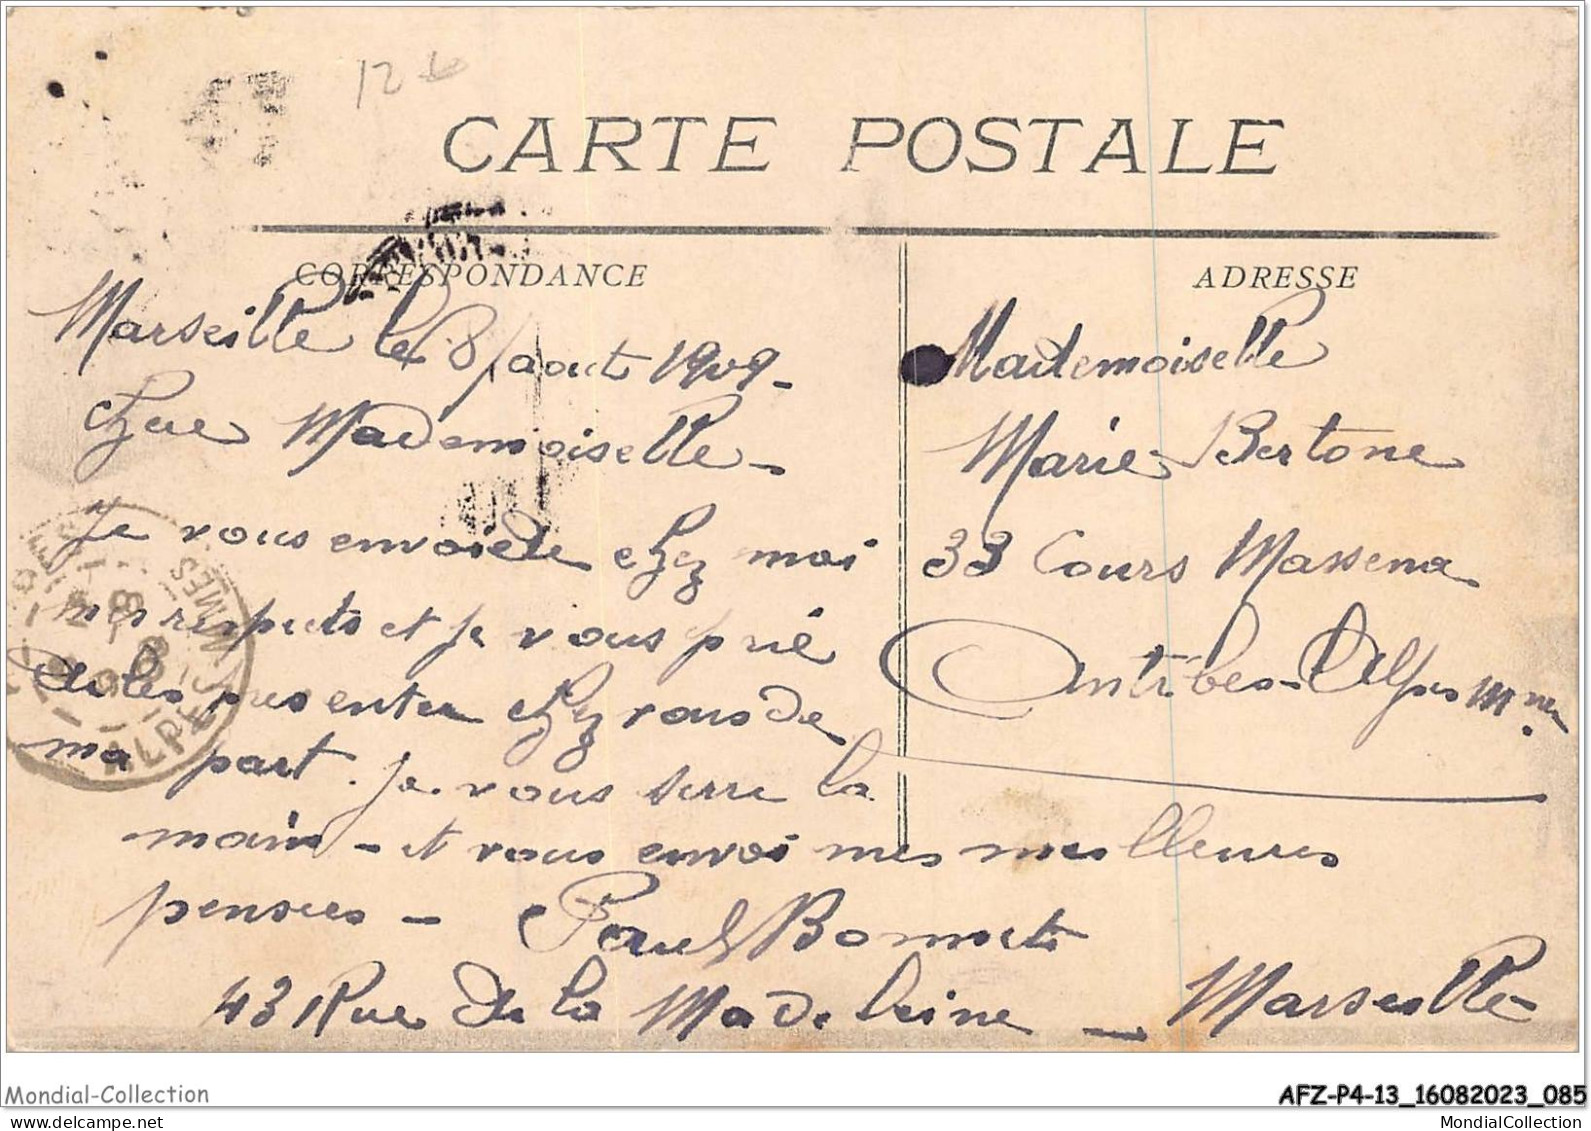 12
CARTE POSTALE
CORRESPONDANCE
ADRESSE
Marseille le 8/aout 1909-
Mademoiselle-
Je vous envoie de chez moi
mes respects et je vous prie
de les presenter chez vous de
ma part. Je vous serre la
main - et vous envoi mes meilleures
pensees - Paul Bonnet
43 Rue de la Madeleine - Marseille-
Mademoiselle
Marie Bertone
33 Cours Massena
Antibes - Alpes Mmes
ALPES
MES
Mondial-Collection
AFZ-P4-13_16082023_085
MondialCollection